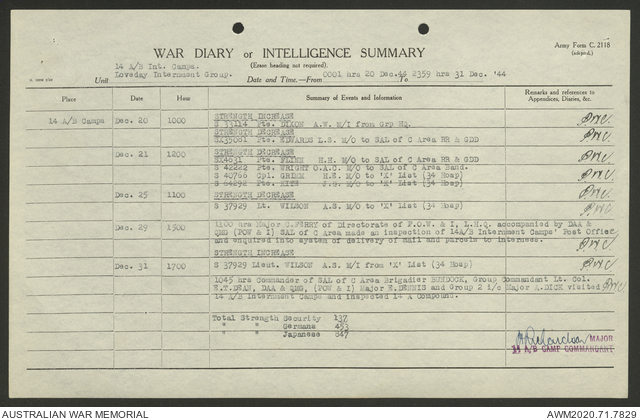 WAR DIARY or INTELLIGENCE SUMMARY
(Erase heading not required).
Army Form C. 2118
(adapted).
14 A/B Int. Camps.
Unit Loveday Internment Group.
Date and Time.—From 0001 hrs 20 Dec. 44 To 2359 hrs 31 Dec. '44
Place Date Hour Summary of Events and Information Remarks and references to Appendices, Diaries, &c.
14 A/B Camps Dec. 20 1000 STRENGTH INCREASE
S 33114 Pte. DIXON A.W. M/I from Grp HQ.
STRENGTH DECREASE
SX35081 Pte. EDWARDS L.S. M/O to SAL of C Area RR & GDD
Dec. 21 1200 STRENGTH DECREASE
SX4631 Pte. FLINN H.H. M/O to SAL of C Area RR & GDD
S 42222 Pte. WRIGHT O.A.C. M/O to SAL of C Area Band.
S 40766 Cpl. GRIMM H.E. M/O to 'X' List (34 Hosp)
S 84292 Pte. M/O to 'X' List (34 Hosp)
Dec. 25 1100 STRENGTH DECREASE
S 37929 Lt. WILSON A.S. M/O to 'X' List (34 Hosp)
Dec. 29 1500 1100 hrs Major C. of Directorate of P.O.W. & I, L.H.Q. accompanied by DAA &
QMG (POW & I) SAL of C Area made an inspection of 14A/B Internment Camps' Post Office
and enquired into system of delivery of mail and parcels to internees.
STRENGTH INCREASE
Dec. 31 1700 S 37929 Lieut. WILSON A.S. M/I from 'X' List (34 Hosp)
1045 hrs Commander of SAL of C Area Brigadier BUNDOCK, Group Commandant Lt. Col.
E.T.DEAN, DAA & QMG, (POW & I) Major E.DENNIS and Group 2 i/c Major A.DICK visited
14 A/B Internment Camps and inspected 14 A Compound.
Total Strength Security 137
" " Germans 453
" " Japanese 847
MAJOR
14 A/B CAMP COMMANDANT
AUSTRALIAN WAR MEMORIAL
AWM2020.71.7829